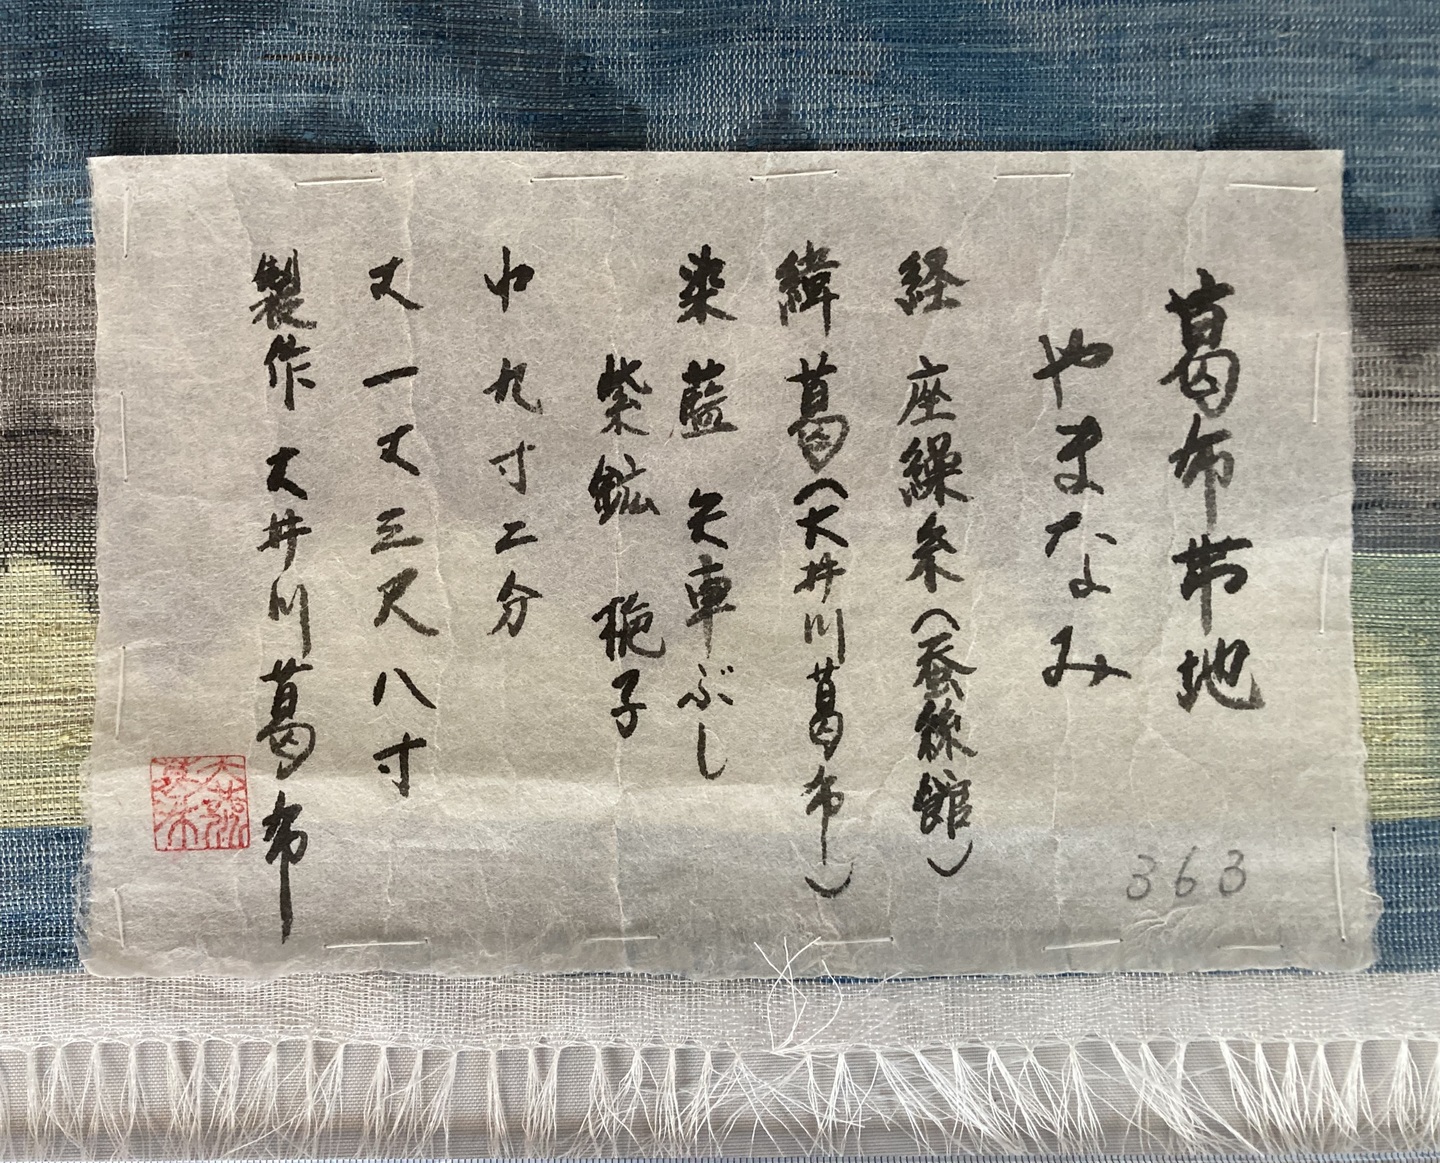 葛布帯地
やまなみ
経 座繰糸(蚕絲館)
緯 葛(大井川葛布)
染 藍 矢車ぶし
紫鉱 梔子
巾 九寸二分
丈 一丈三尺八寸
製作 大井川葛布
363